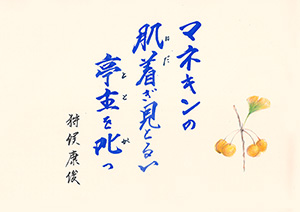 マネキンの
肌着ぎ見とるい
亭主を叱っ